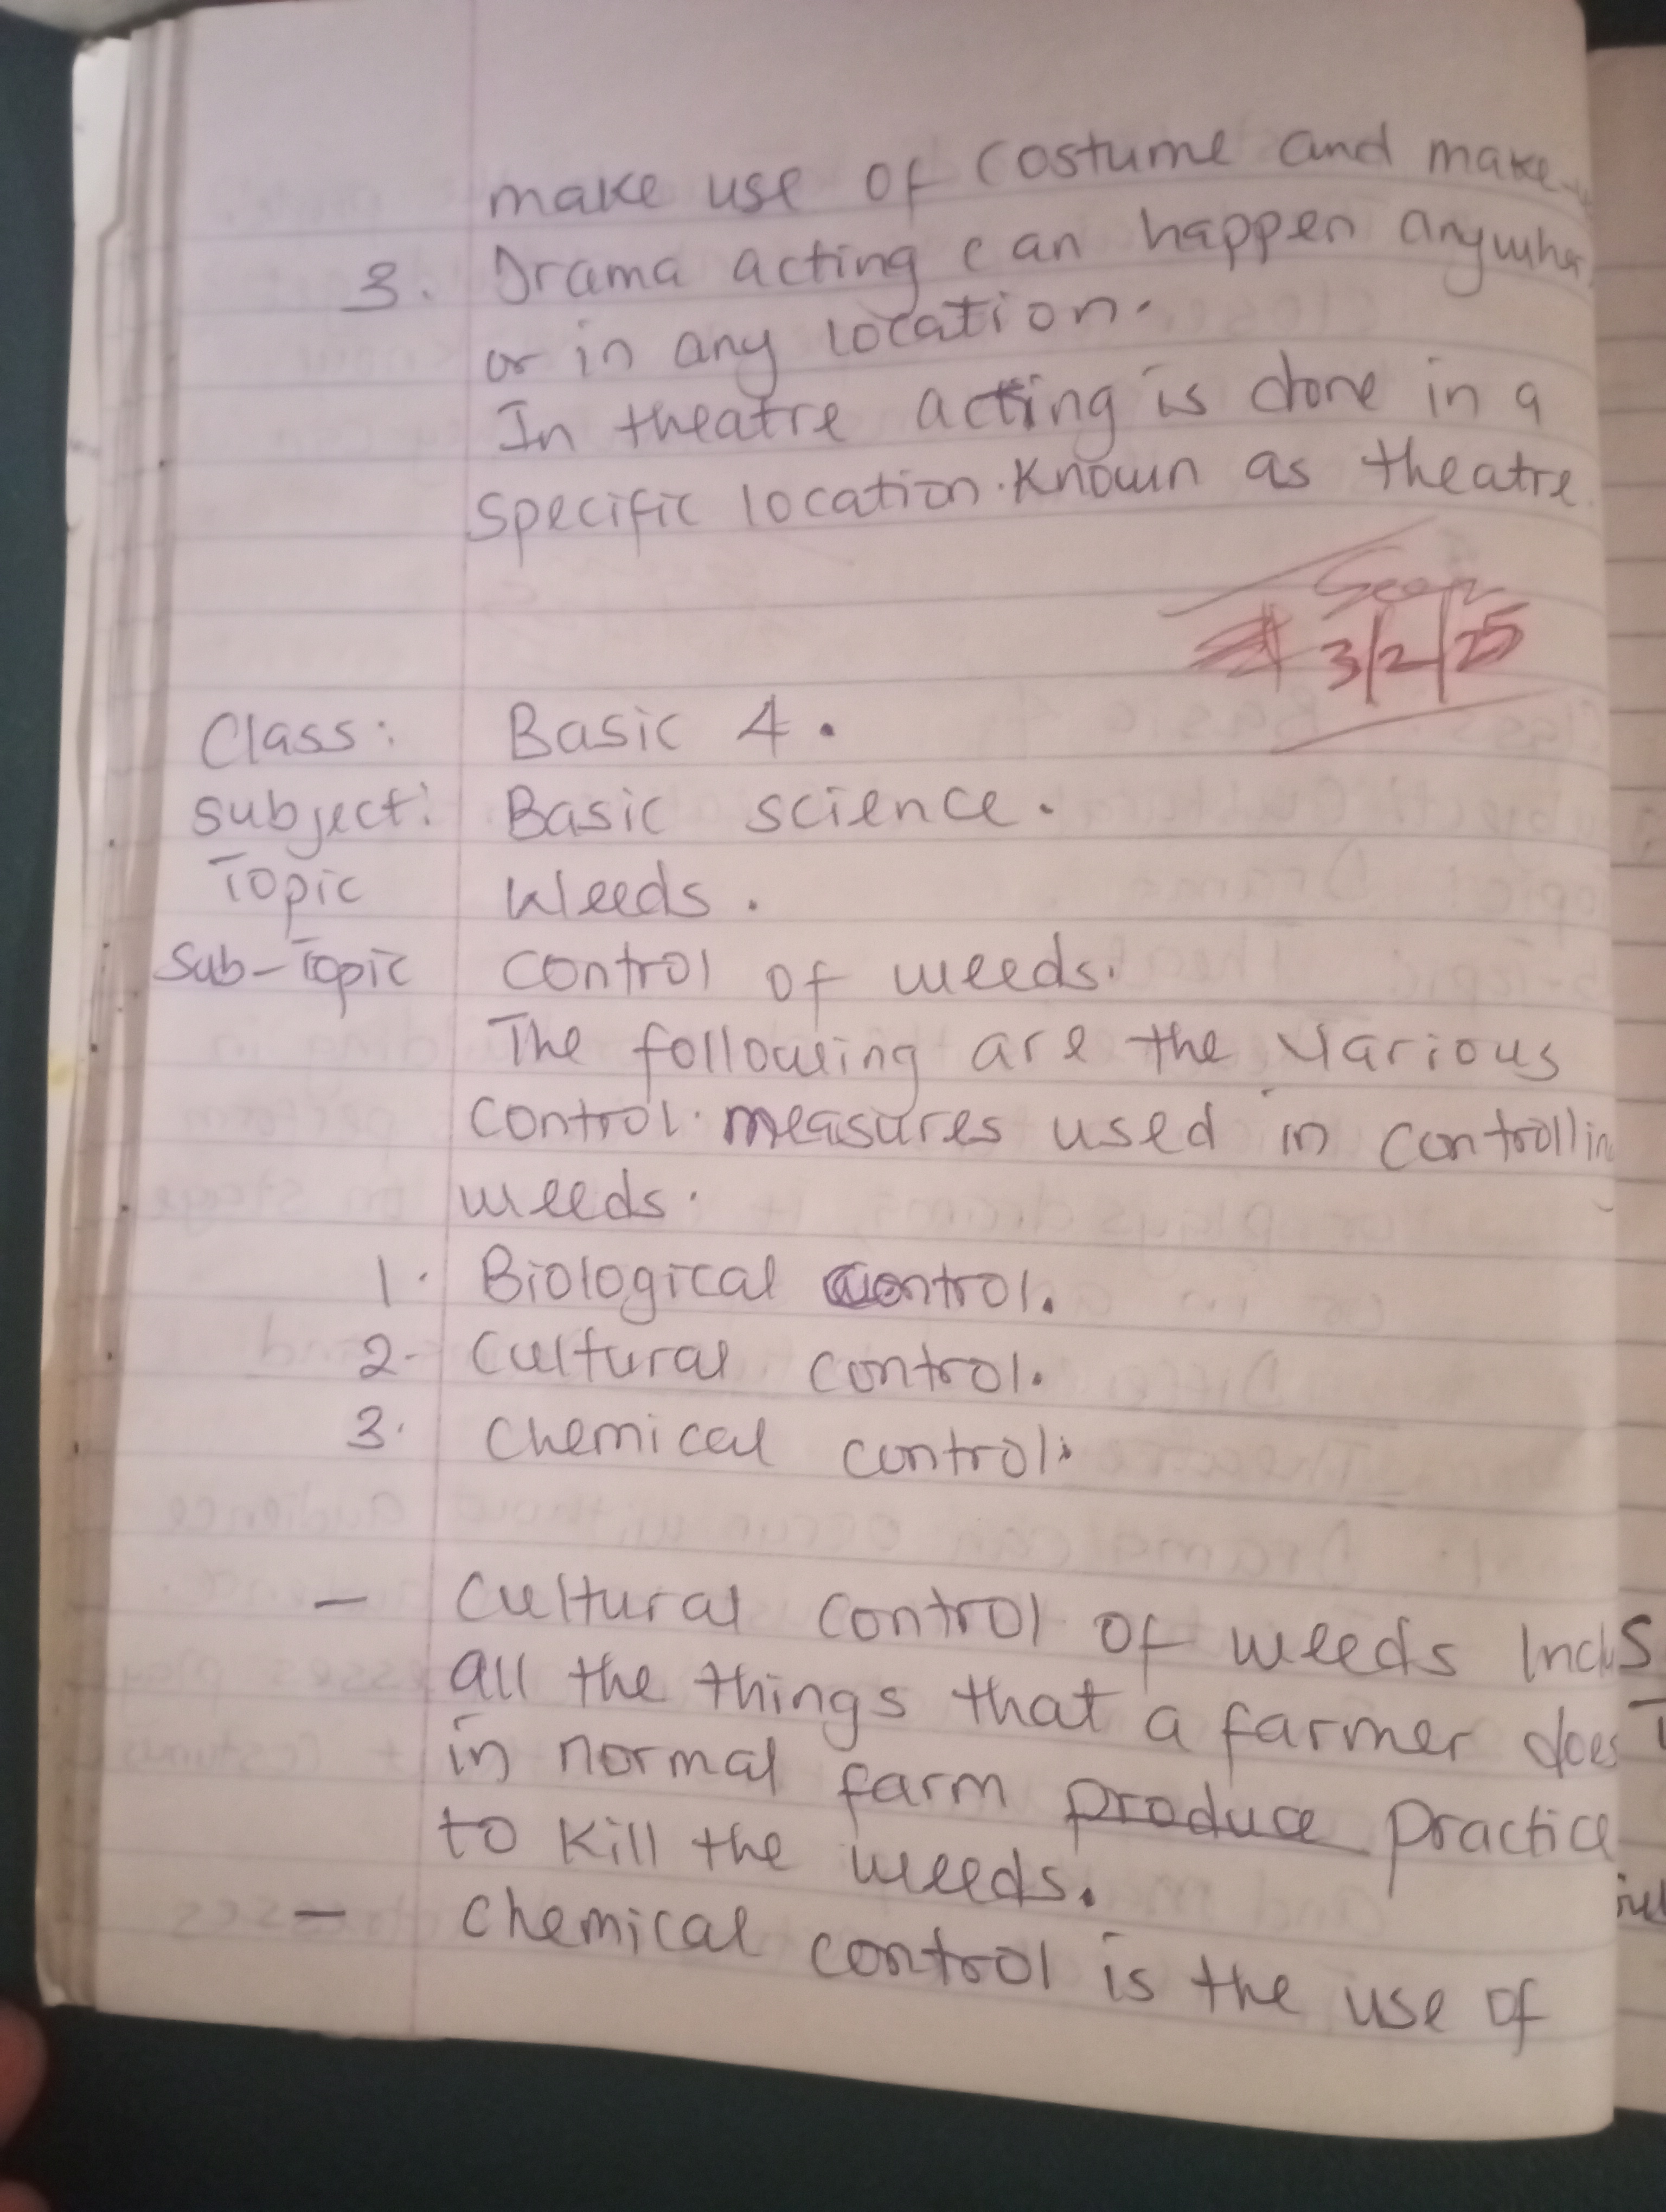 make use of costume and make-
3. Drama acting can happen anywhe
or in any location.
In theatre acting is done in a
specific location. Known as theatre.
Seen
3/2/25
Class: Basic 4.
Subject: Basic science.
Topic Weeds.
Sub-Topic control of weeds.
The following are the various
control measures used in controllin
weeds.
1. Biological control.
2. Cultural control.
3. Chemical control.
- Cultural control of weeds Inclu
all the things that a farmer does
in normal farm produce practice
to kill the weeds.
- Chemical control is the use of